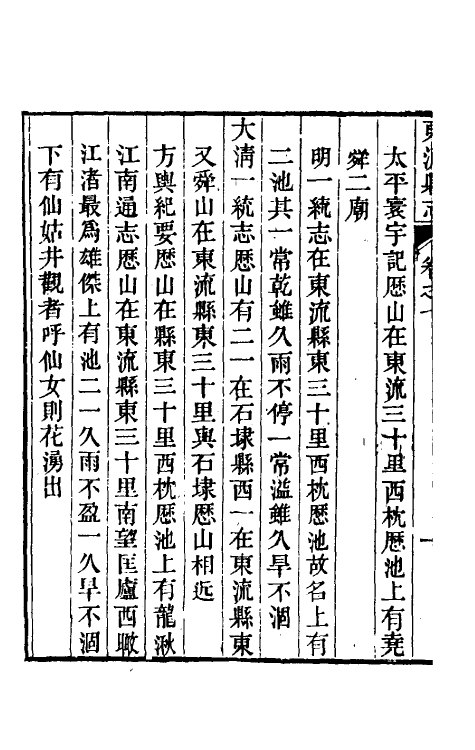 東流縣志
卷之一
一
太平寰宇記歴山在東流三十里西枕歴池上有堯
舜二廟
明一統志在東流縣東三十里西枕歴池故名上有
二池其一常乾雖久雨不停一常溢雖久旱不涸
大清一統志歴山有二一在石埭縣西一在東流縣東
又舜山在東流縣東三十里與石埭歴山相近
方輿紀要歴山在縣東三十里西枕歴池上有龍湫
江南通志歴山在東流縣東三十里南望匡廬西瞰
江渚最爲雄傑上有池二一久雨不盈一久旱不涸
下有仙姑井觀者呼仙女則花湧出